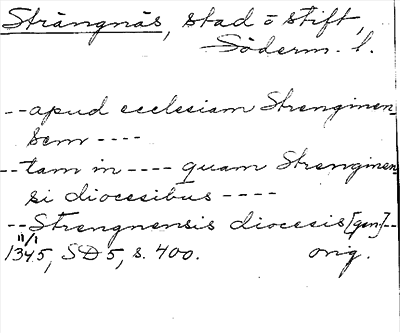 Strängnäs, stad o stift,
Söderm. l.
--apud ecclesiam Strenginen
sem ----
--tam in ---- quam Strenginen-
si diocesibus ----
--Strengnensis diocesis [gen]--
11/1
1345, SD 5, s. 400. orig.